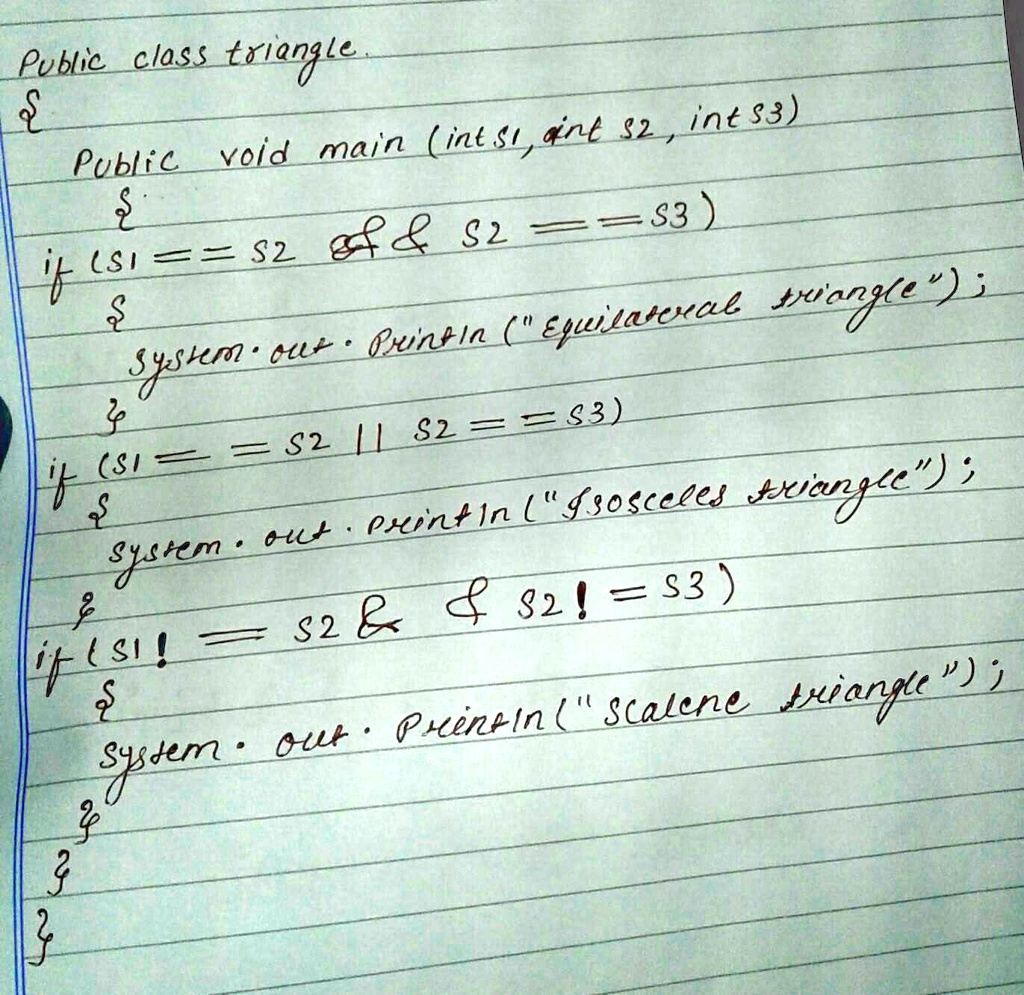 Public class triangle.
{
Public void main (int S1, int S2, int S3)
{
if (S1 == S2 && S2 == S3)
{
System.out.Println ("Equilateral triangle");
}
if (S1 == S2 || S2 == S3)
{
System.out.println ("Isosceles triangle");
}
if (S1! == S2 && S2! = S3)
{
System.out.Println ("Scalene triangle");
}
}
}